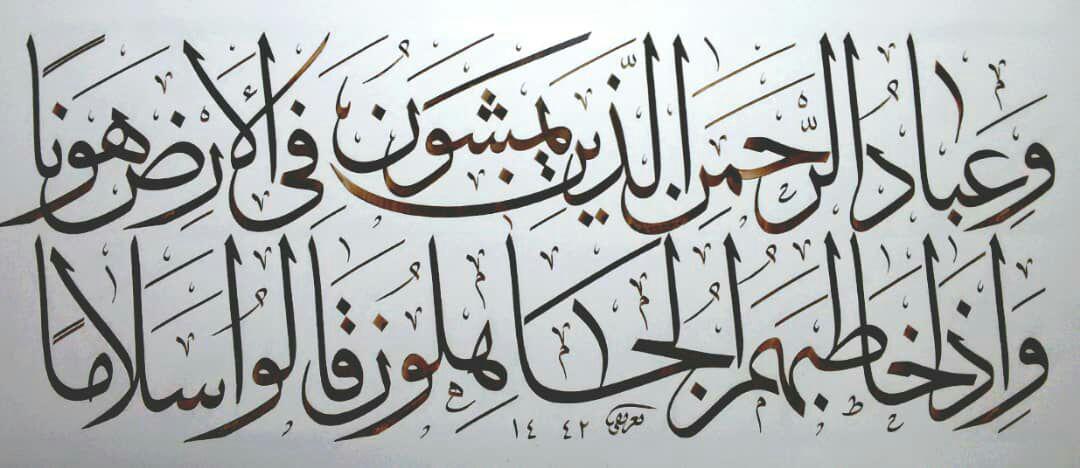 وَعِبَادُ الرَّحْمَنِ الَّذِينَ يَمْشُونَ فِى الْأَرْضِ هَوْنًا
وَإِذَا خَاطَبَهُمُ الْجَاهِلُونَ قَالُوا سَلَامًا
١٤٤٢